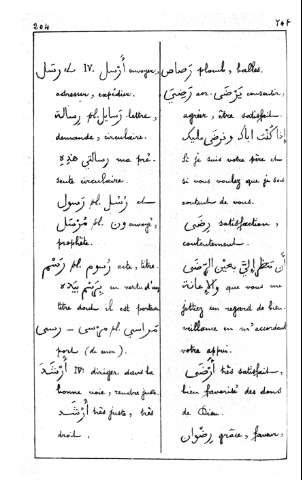 204 ٢٠٤
رسل et IV. أَرْسل envoyer,
adresser, expédier.
رسالة pl. رسايل lettre,
demande, circulaire.
رسالتي هذه ma pré-
sente circulaire.
رسول pl. رُسُل et
مُرْسَل pl. ون envoyé,
prophète.
رَسْم pl. رسوم acte, titre.
en vertu d'un
titre dont il est porteur
رسى — مرسى pl. مراسي
port (de mer).
أَرْشَدَ IV. diriger dans la
bonne voie, rendre juste.
أَرْشَد très juste, très
droit.
رَصاص plomb, balles.
رَضِيَ aor. يَرْضَى consentir,
agréer, être satisfait.
إذا كُنْت اباك ونرضى عليك
Si je suis votre père et
si vous voulez que je sois
content de vous.
رِضَى satisfaction,
contentement.
أن تنظر إليّ بعين الرّضى
والإعانة que vous me
jettiez un regard de bien-
veillance en m'accordant
votre appui.
أَرْضَى très satisfait,
bien favorisé des dons
de Dieu.
رِضْوان grâce, faveur,